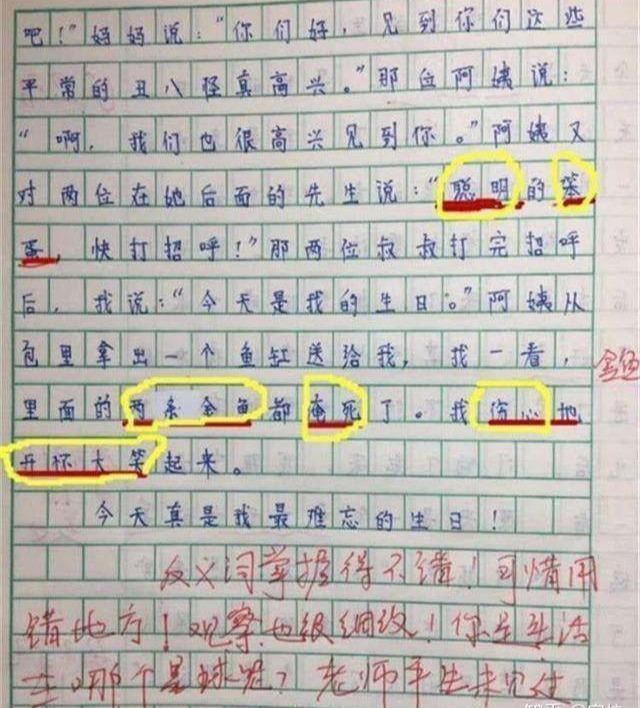 吧!"妈妈说:"你们好,见到你们这些
平常的丑八怪真高兴。"那位阿姨说:
"啊,我们也很高兴见到你。"阿姨又
对两位在她后面的先生说:"聪明的笨
蛋,快打招呼!"那两位叔叔打完招呼
后,我说:"今天是我的生日。"阿姨从
包里拿出一个鱼缸送给我,我一看,
金鱼
里面的两条金鱼都淹死了。我伤心地
开怀大笑起来。
今天真是我最难忘的生日!
反义词掌握得不错!可惜用
错地方!观察也很细致!你是生活
在哪个星球呢?老师平生未见过
知乎